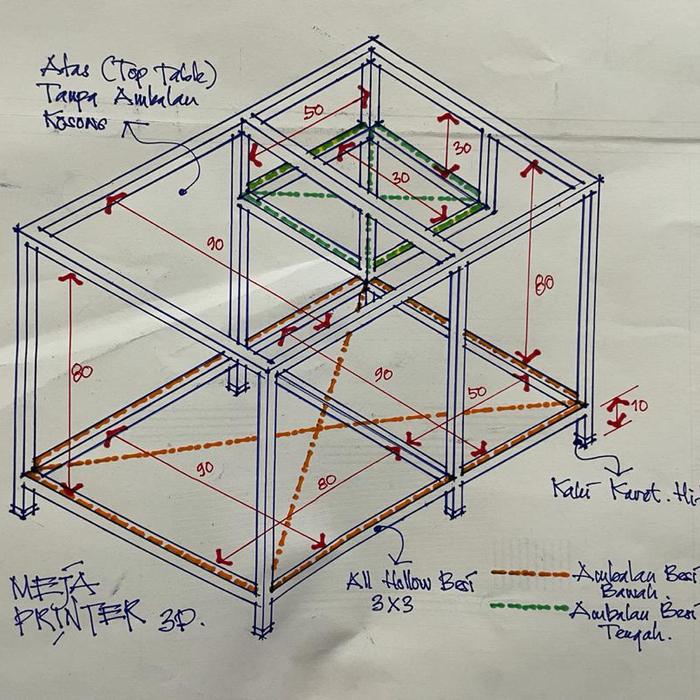 Atas (Top Table)
Tanpa Ambalan
Kosong
50
30
30
90
80
80
90
50
10
90
80
Kaki Karet. Hi
All Hollow Besi
3x3
MEJA
PRINTER 3D.
Ambalan Besi
Bawah.
Ambalan Besi
Tengah.